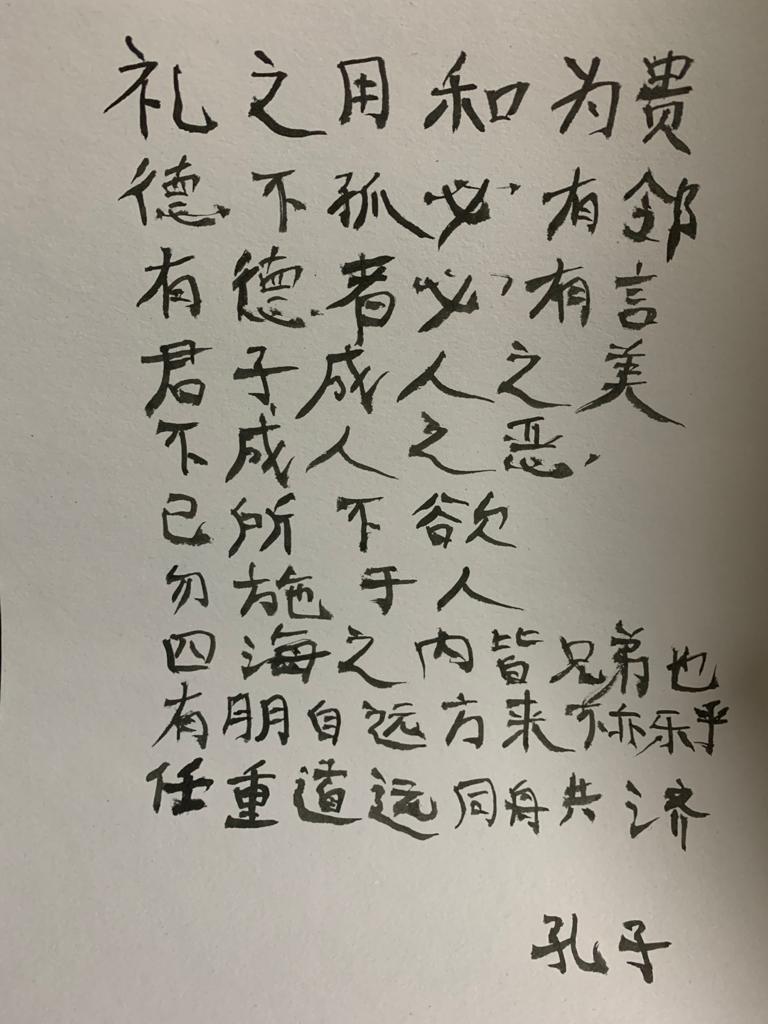 礼之用和为贵
德不孤必有邻
有德者必有言
君子成人之美
不成人之恶
己所不欲
勿施于人
四海之内皆兄弟也
有朋自远方来不亦乐乎
任重道远同舟共济
孔子